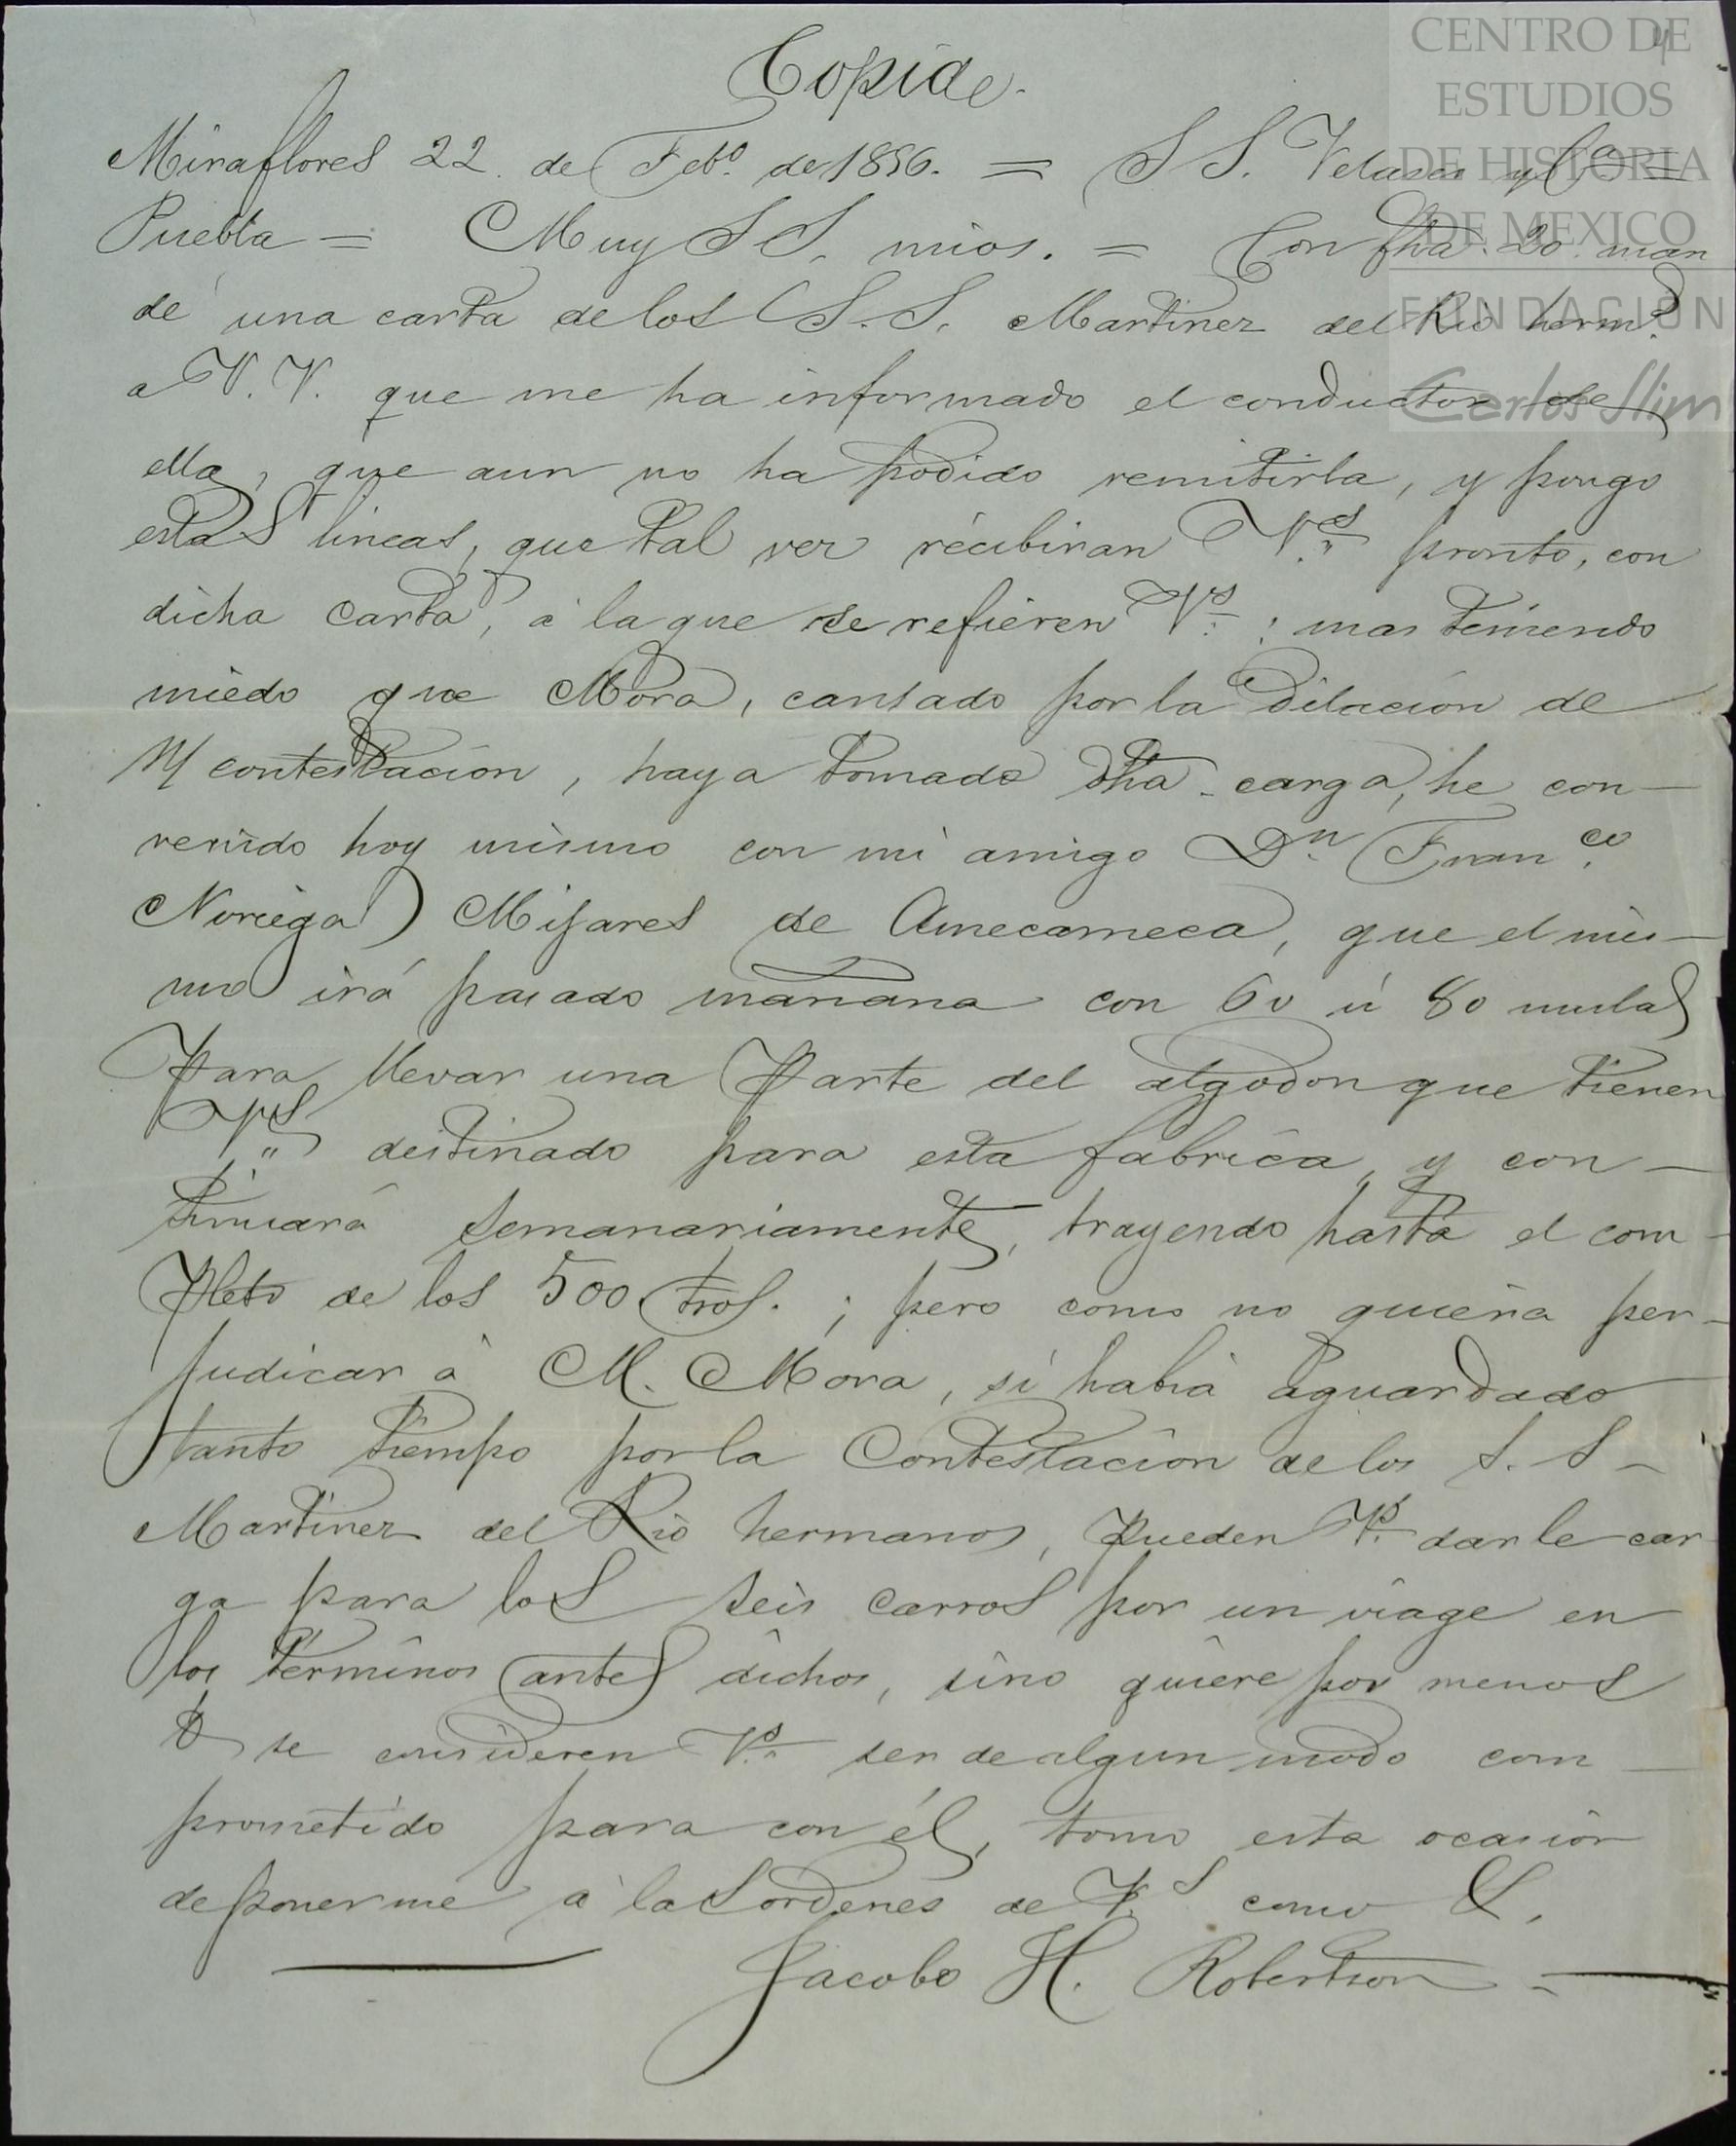 Copia.
CENTRO DE
ESTUDIOS
DE HISTORIA
DE MEXICO
FUNDACIÓN
Carlos Slim
Miraflores 22 de Febº. de 1856. = S S. Velasco y Cª =
Puebla = Muy S S. mios. = Con fha. 20 man
dé una carta de los S. S. Martinez del Rio herms.
a V. V. que me ha informado el conductor de
ella, que aun no ha podido remitirla, y pongo
estas lineas, que tal vez recibiran V.es pronto, con
dicha carta, á la que se refieren Vs. ; mas temiendo
miedo que Mora, cansado por la dilacion de
M/ contestacion, haya tomado dha. carga, he con-
venido hoy mismo con mi amigo Dn. Franco.
Noriega Mijares de Amecameca, que el mis-
mo irá pasado mañana con 60 ú 80 mulas
para llevar una parte del algodon que tienen
Vs. destinado para esta fabrica, y con-
tinuará semanariamente, trayendo hasta el com-
pleto de los 500 tros. ; pero como no queria per-
judicar á M. Mora, si habia aguardado
tanto tiempo por la Contestacion de los S. S-
Martinez del Rio hermanos, pueden Vs. darle car
ga para los seis carros por un viage en
los terminos antes dichos, sino quiere por menos
O se consideren Vs. ser de algun modo com-
prometido para con él, tomo esta ocasion
de ponerme á las ordenes de Vs. como S.
Jacobo H. Robertson =